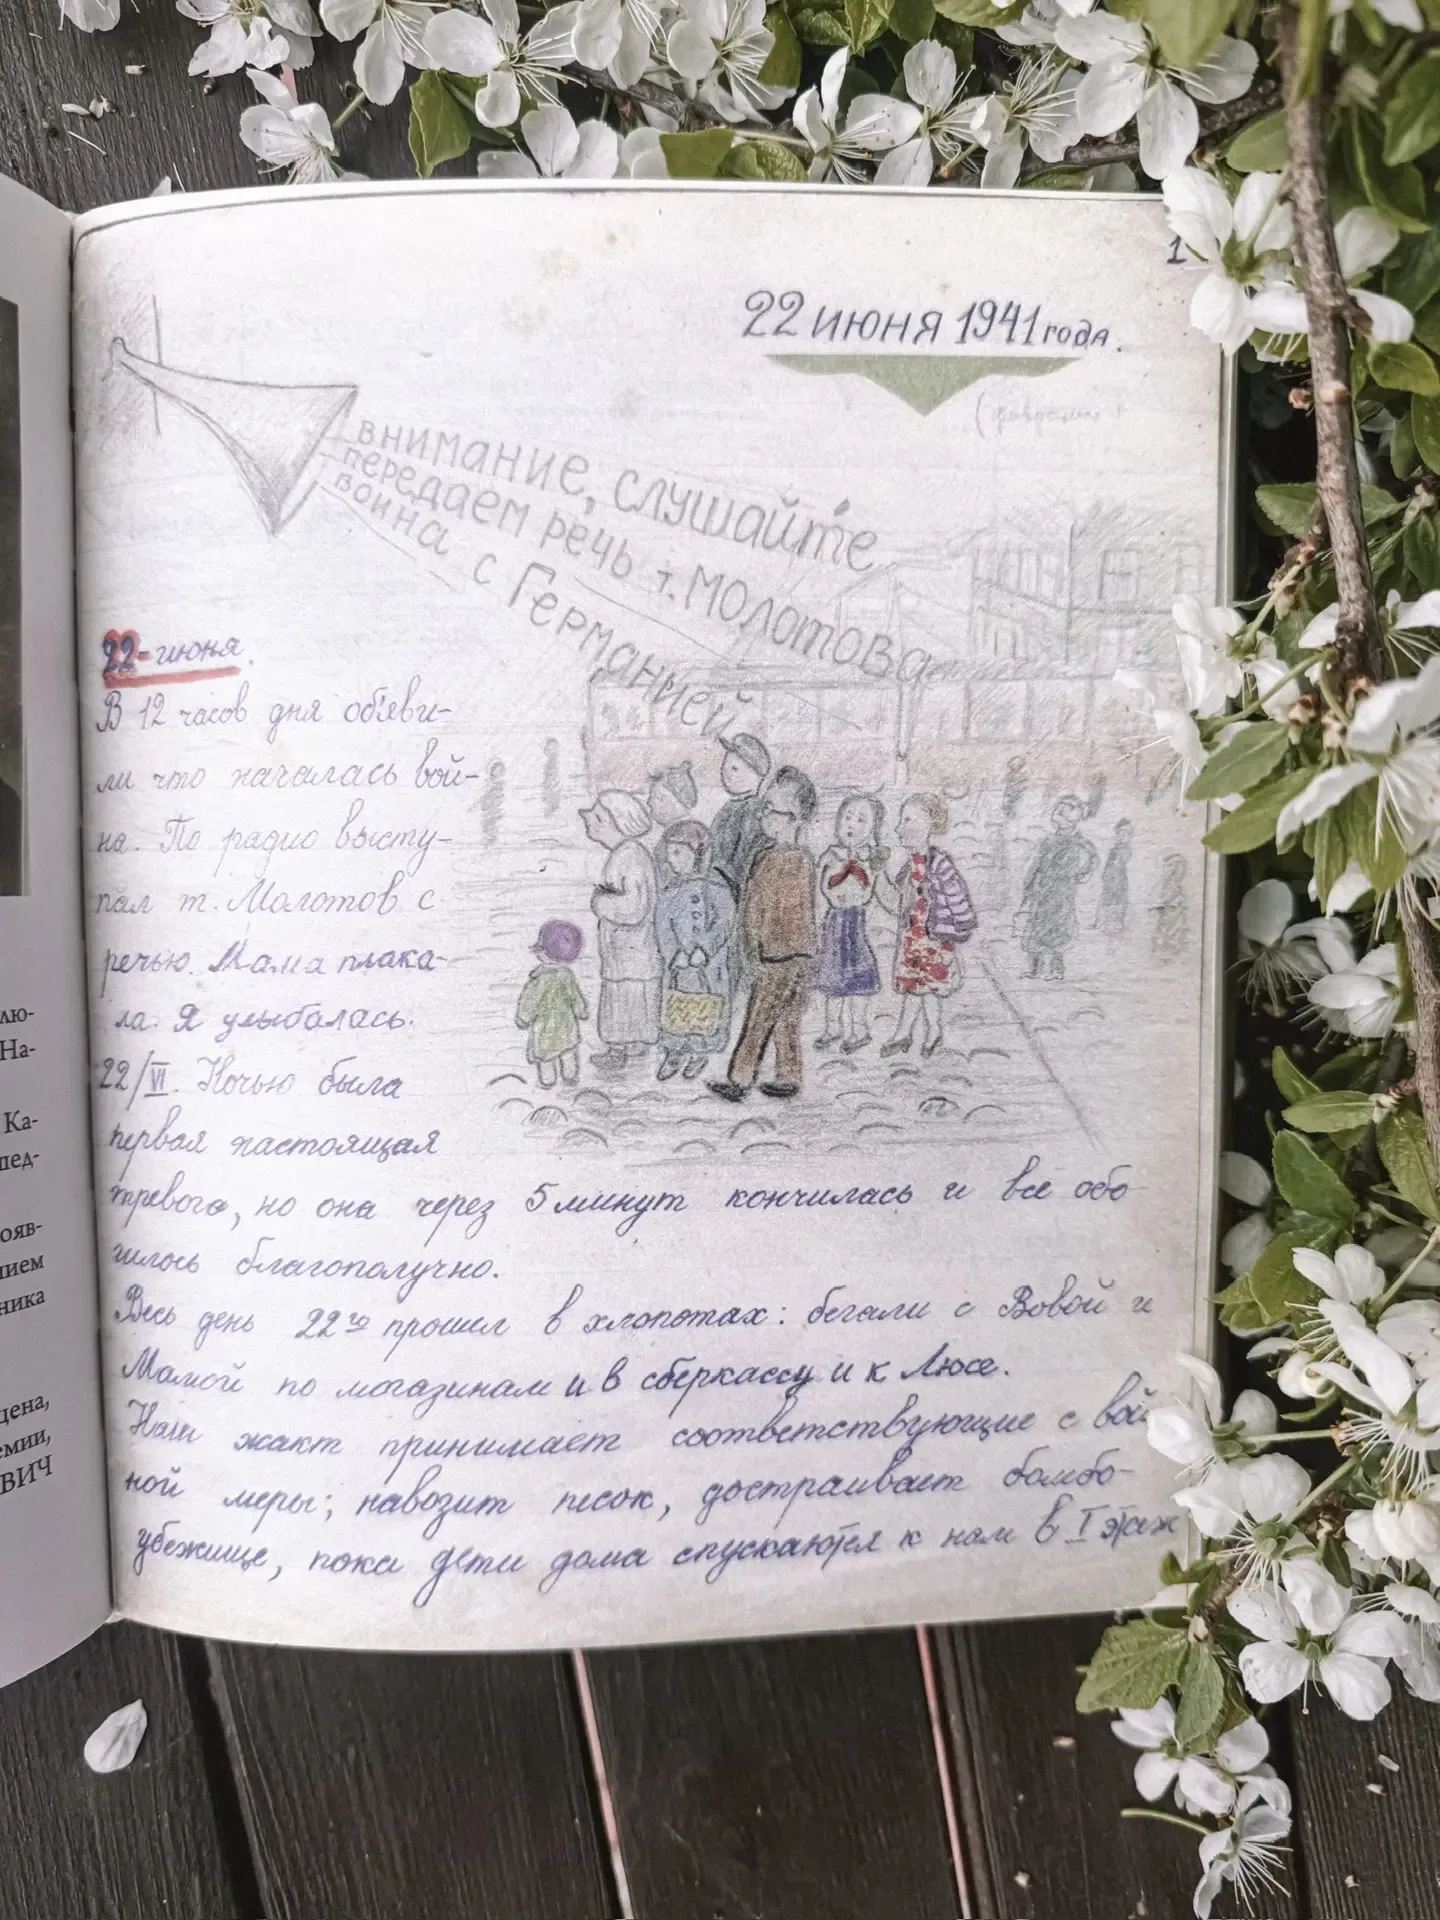 1
22 июня 1941 года.
внимание, слушайте
передаем речь т. Молотова
воина с Германией
22-июня.
В 12 часов дня объяви-
ли что началась вой-
на. По радио высту-
пал т. Молотов с
речью. Мама плака-
ла. Я улыбалась.
22/VI. Ночью была
первая настоящая
тревога, но она через 5 минут кончилась и всё обо-
шлось благополучно.
Весь день 22го прошел в хлопотах: бегали с Вовой и
Мамой по магазинам и в сберкассу и к Люсе.
Наш жакт принимает соответствующие с вой
ной меры; навозит песок, достраивает бомбо-
убежище, пока дети дома спускаются к нам в I этаж
лю-
На-
Ка-
шед-
ояв-
нием
ника
цена,
емии,
ВИЧ